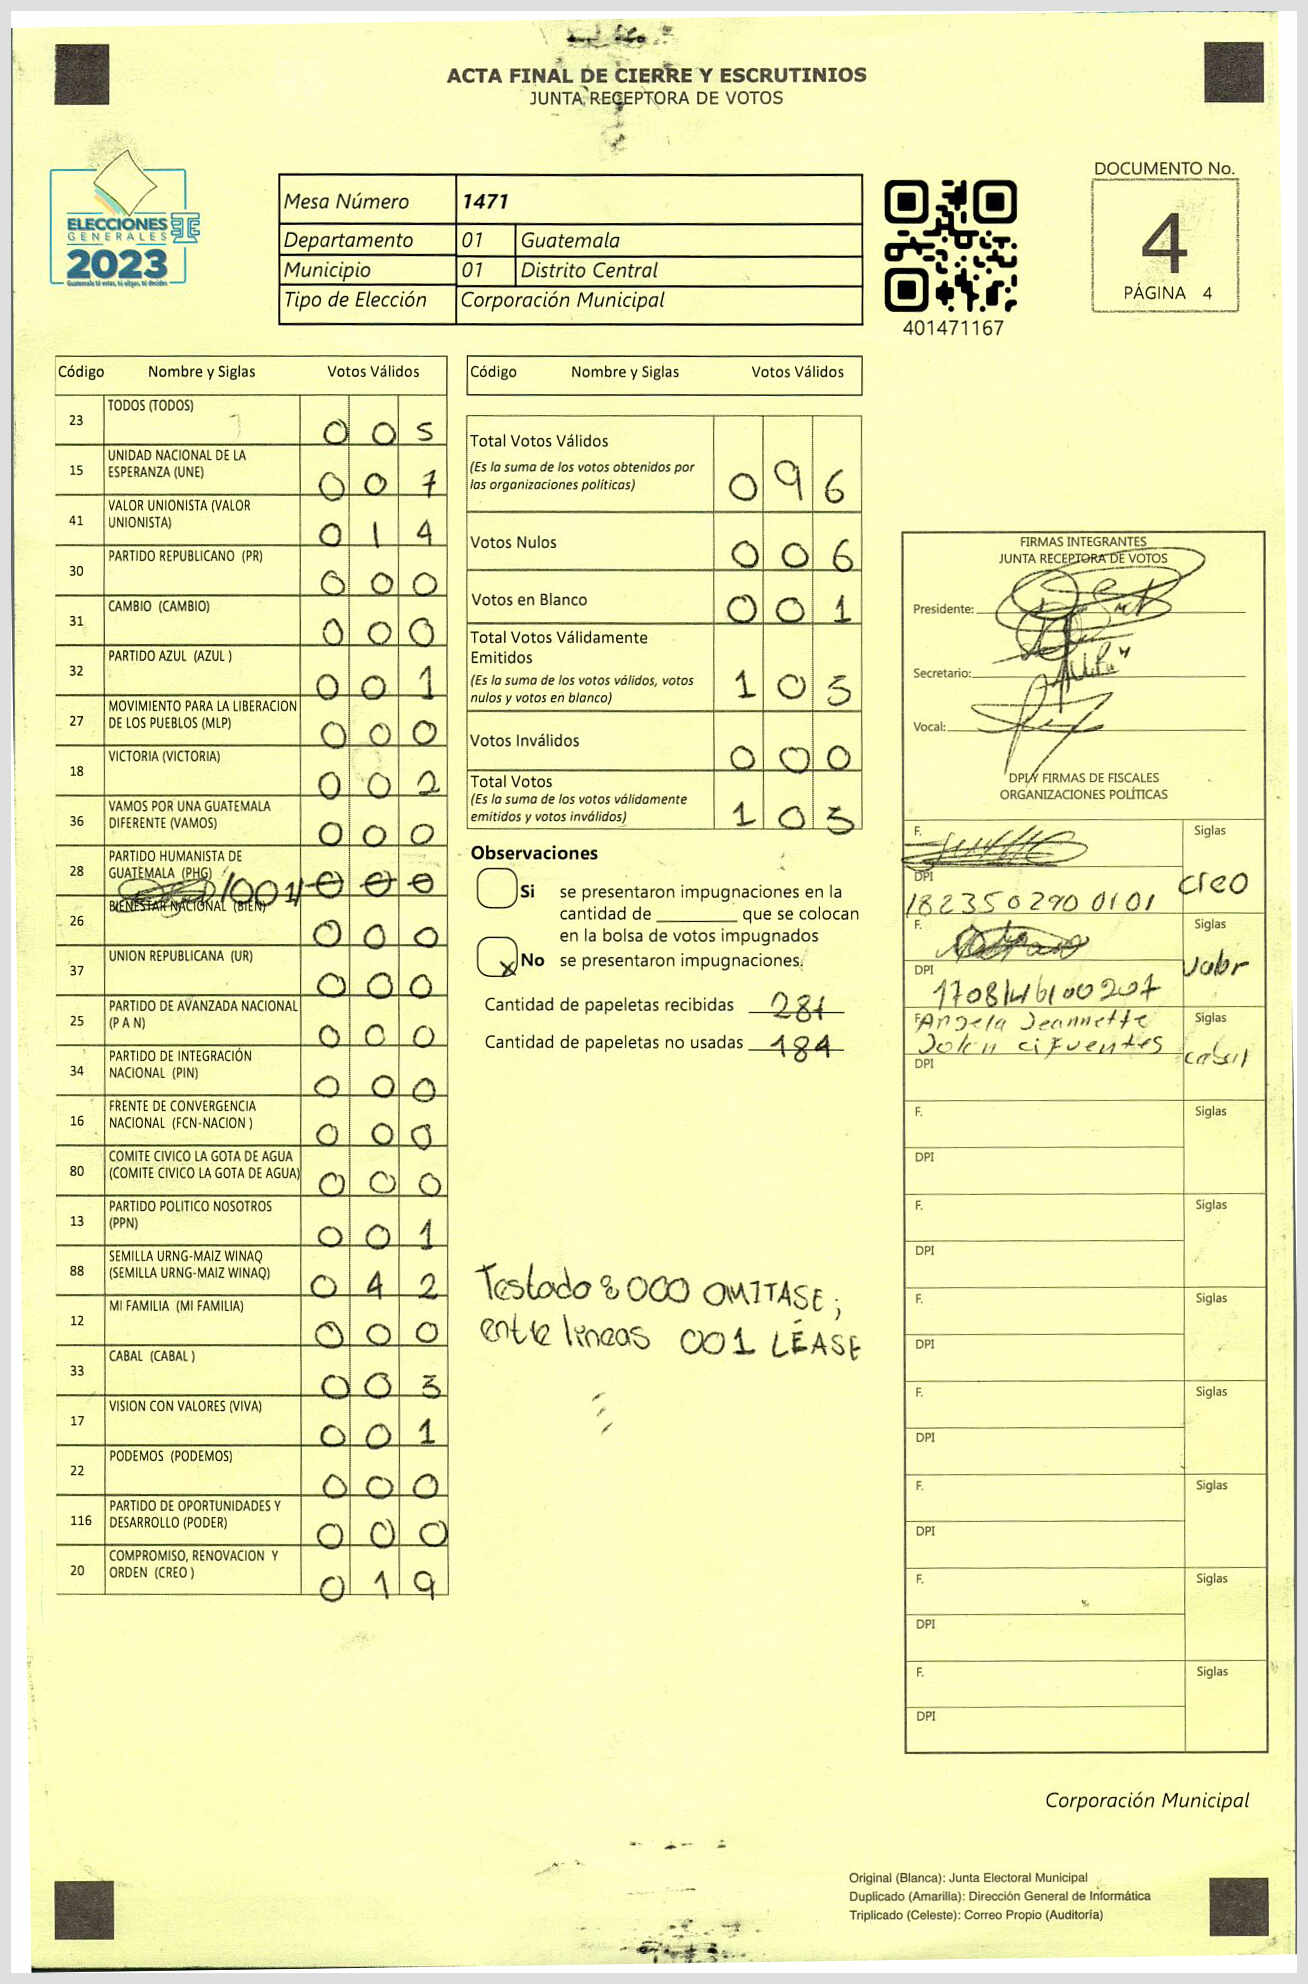 ACTA FINAL DE CIERRE Y ESCRUTINIOS
JUNTA RECEPTORA DE VOTOS
ELECCIONES
GENERALES
2023
Guatemala tú votas, tú eliges, tú decides
Mesa Número 1471
Departamento 01 Guatemala
Municipio 01 Distrito Central
Tipo de Elección Corporación Municipal
401471167
DOCUMENTO No.
4
PÁGINA 4
Código Nombre y Siglas Votos Válidos
23 TODOS (TODOS) 0 0 5
15 UNIDAD NACIONAL DE LA
ESPERANZA (UNE) 0 0 7
41 VALOR UNIONISTA (VALOR
UNIONISTA) 0 1 4
30 PARTIDO REPUBLICANO (PR) 0 0 0
31 CAMBIO (CAMBIO) 0 0 0
32 PARTIDO AZUL (AZUL ) 0 0 1
27 MOVIMIENTO PARA LA LIBERACION
DE LOS PUEBLOS (MLP) 0 0 0
18 VICTORIA (VICTORIA) 0 0 2
36 VAMOS POR UNA GUATEMALA
DIFERENTE (VAMOS) 0 0 0
28 PARTIDO HUMANISTA DE
GUATEMALA (PHG) /001/ 0 0 0
26 BIENESTAR NACIONAL (BIEN) 0 0 0
37 UNION REPUBLICANA (UR) 0 0 0
25 PARTIDO DE AVANZADA NACIONAL
(P A N) 0 0 0
34 PARTIDO DE INTEGRACIÓN
NACIONAL (PIN) 0 0 0
16 FRENTE DE CONVERGENCIA
NACIONAL (FCN-NACION ) 0 0 0
80 COMITE CIVICO LA GOTA DE AGUA
(COMITE CIVICO LA GOTA DE AGUA) 0 0 0
13 PARTIDO POLITICO NOSOTROS
(PPN) 0 0 1
88 SEMILLA URNG-MAIZ WINAQ
(SEMILLA URNG-MAIZ WINAQ) 0 4 2
12 MI FAMILIA (MI FAMILIA) 0 0 0
33 CABAL (CABAL ) 0 0 3
17 VISION CON VALORES (VIVA) 0 0 1
22 PODEMOS (PODEMOS) 0 0 0
116 PARTIDO DE OPORTUNIDADES Y
DESARROLLO (PODER) 0 0 0
20 COMPROMISO, RENOVACION Y
ORDEN (CREO ) 0 1 9
Código Nombre y Siglas Votos Válidos
Total Votos Válidos
(Es la suma de los votos obtenidos por
las organizaciones políticas) 0 9 6
Votos Nulos 0 0 6
Votos en Blanco 0 0 1
Total Votos Válidamente
Emitidos
(Es la suma de los votos válidos, votos
nulos y votos en blanco) 1 0 3
Votos Inválidos 0 0 0
Total Votos
(Es la suma de los votos válidamente
emitidos y votos inválidos) 1 0 3
Observaciones
Si se presentaron impugnaciones en la
cantidad de ________ que se colocan
en la bolsa de votos impugnados
x No se presentaron impugnaciones.
Cantidad de papeletas recibidas 287
Cantidad de papeletas no usadas 184
Testado: 000 OMITASE;
entre lineas 001 LÉASE
FIRMAS INTEGRANTES
JUNTA RECEPTORA DE VOTOS
Presidente:
Secretario:
Vocal:
DPI Y FIRMAS DE FISCALES
ORGANIZACIONES POLÍTICAS
F. Siglas
creo
DPI
182350290 0101
F. Siglas
valor
DPI
F. Siglas
Angela Jeannette
cifuentes
cabal
DPI
F. Siglas
DPI
F. Siglas
DPI
F. Siglas
DPI
F. Siglas
DPI
F. Siglas
DPI
F. Siglas
DPI
F. Siglas
DPI
Corporación Municipal
Original (Blanca): Junta Electoral Municipal
Duplicado (Amarilla): Dirección General de Informática
Triplicado (Celeste): Correo Propio (Auditoría)